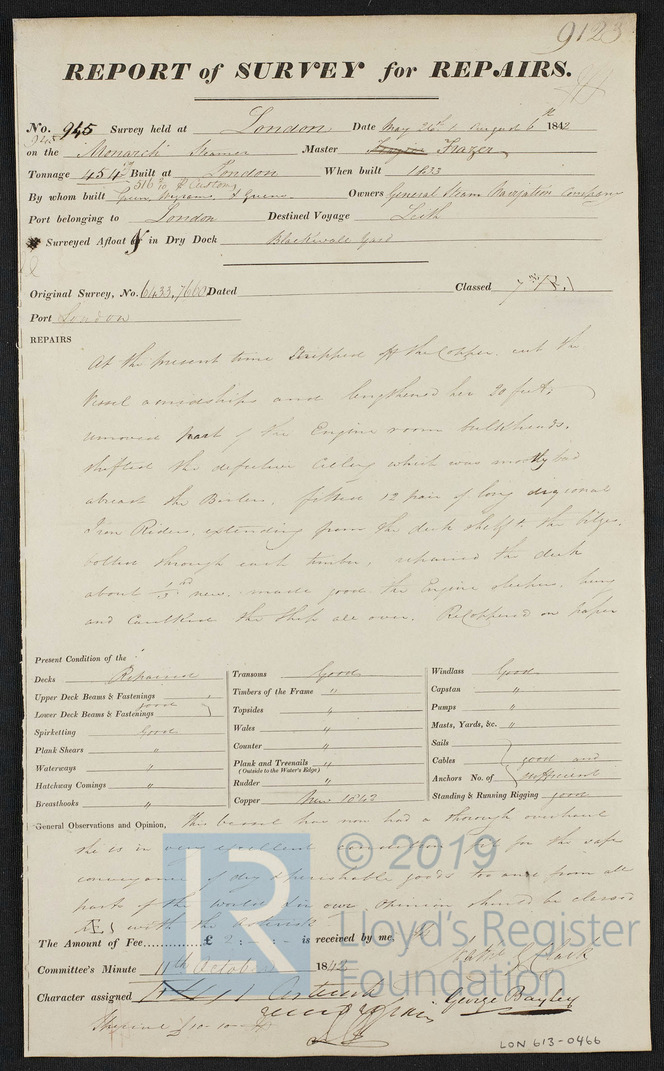 9123
REPORT of SURVEY for REPAIRS.
No. 945 Survey held at London Date May 26th & August 6th 1842
945
on the Monarch Steamer Master Frazer
Tonnage 454 Built at London When built 1833
516
By whom built Green, Wigrams & Greens Owners General Steam Navigation Company
Port belonging to London Destined Voyage Leith
Surveyed Afloat & in Dry Dock Blackwall Yard
Original Survey, No. 6433, 7600 Dated Classed
Port London
REPAIRS
At the present time Stripped off the Copper, cut the
Vessel amidships and lengthened her 20 feet,
removed part of the Engine room bulkheads,
shifted the defective Ceiling which was mostly bad
abreast the Boilers, fitted 12 pair of long diagonal
Iron Riders, extending from the deck shelf to the bilges,
bolted through each timber, repaired the deck
about 1/3rd new, made good the Engine sleepers, hung
and Caulked the Ship all over. ReCoppered on paper
Present Condition of the
Decks Repaired
Upper Deck Beams & Fastenings
Lower Deck Beams & Fastenings good
Spirketting Good
Plank Shears "
Waterways "
Hatchway Comings "
Breasthooks "
Transoms Good
Timbers of the Frame "
Topsides "
Wales "
Counter "
Plank and Treenails "
(Outside to the Water's Edge)
Rudder "
Copper New 1842
Windlass Good
Capstan "
Pumps "
Masts, Yards, &c. "
Sails
Cables good and
Anchors No. of sufficient
Standing & Running Rigging good
General Observations and Opinion, This vessel has now had a thorough overhaul
she is in very excellent condition fit for the safe
conveyance of dry & perishable goods to and from all
parts of the world & in our opinion should be classed
with the asterisk
The Amount of Fee............... £ 2:-:- is received by me,
Committee's Minute 11th October 1842
Character assigned Asterisk
George Bayley
© 2019
Lloyd's Register
Foundation
LR
LON 613-0466